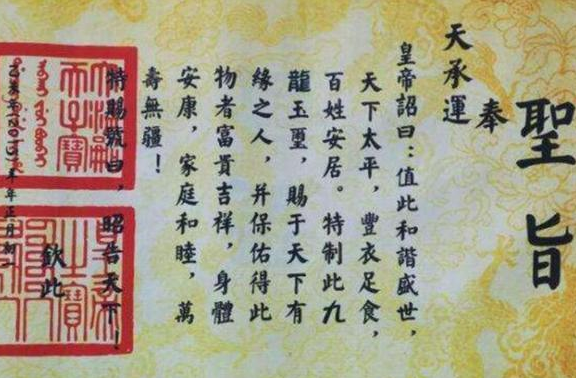 聖旨
奉
天承運
皇帝詔曰：值此和諧盛世，
天下太平，豐衣足食，
百姓安居。特制此九
龍玉璽，賜于天下有
緣之人，并保佑得此
物者富貴吉祥，身體
安康，家庭和睦，萬
壽無疆！
特賜號曰，昭告天下！
欽此
年正月初